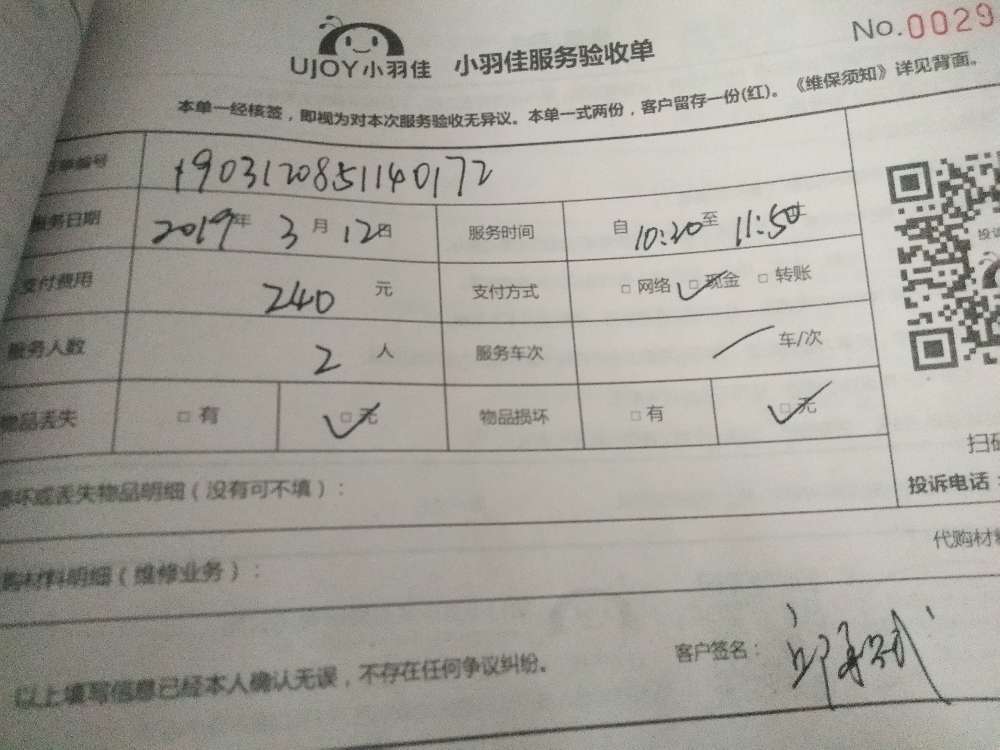 No.0029
UJOY小羽佳 小羽佳服务验收单
本单一经核签，即视为对本次服务验收无异议。本单一式两份，客户留存一份(红)。《维保须知》详见背面。
单编号 1903120851140172
服务日期 2019年 3月 12日 服务时间 自 10:20 至 11:50
支付费用 240 元 支付方式 □网络 □现金 □转账
服务人数 2 人 服务车次 车/次
物品丢失 □有 □无 物品损坏 □有 □无
损坏或丢失物品明细（没有可不填）：
扫码
投诉电话：
购材料明细（维修业务）：
代购材料
以上填写信息已经本人确认无误，不存在任何争议纠纷。 客户签名：